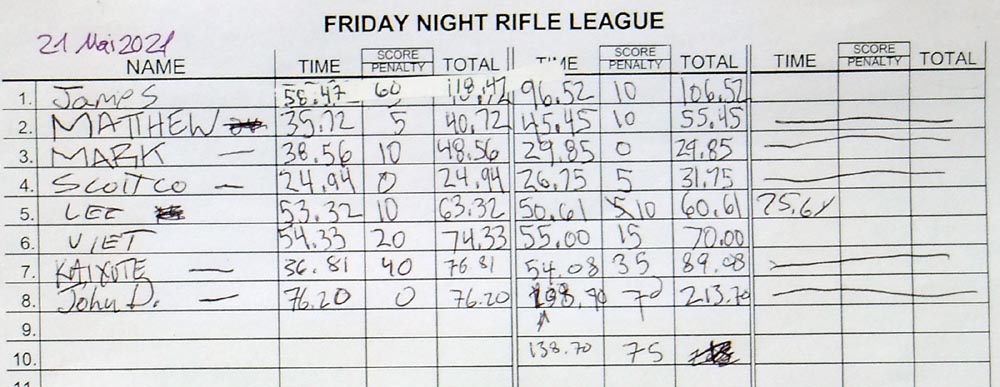 FRIDAY NIGHT RIFLE LEAGUE
21 Mai 2021
NAME TIME SCORE PENALTY TOTAL TIME SCORE PENALTY TOTAL TIME SCORE PENALTY TOTAL
1. James 58.47 60 118.47 96.52 10 106.52
2. MATTHEW 35.72 5 40.72 45.45 10 55.45
3. MARK — 38.56 10 48.56 29.85 0 29.85
4. SCOTT CO — 24.94 0 24.94 26.75 5 31.75
5. LEE 53.32 10 63.32 50.61 10 60.61 75.61
6. VIET 54.33 20 74.33 55.00 15 70.00
7. — 36.81 40 76.81 54.08 35 89.08
8. John D. — 76.20 0 76.20 213.70
9.
10. 138.70 75
11.